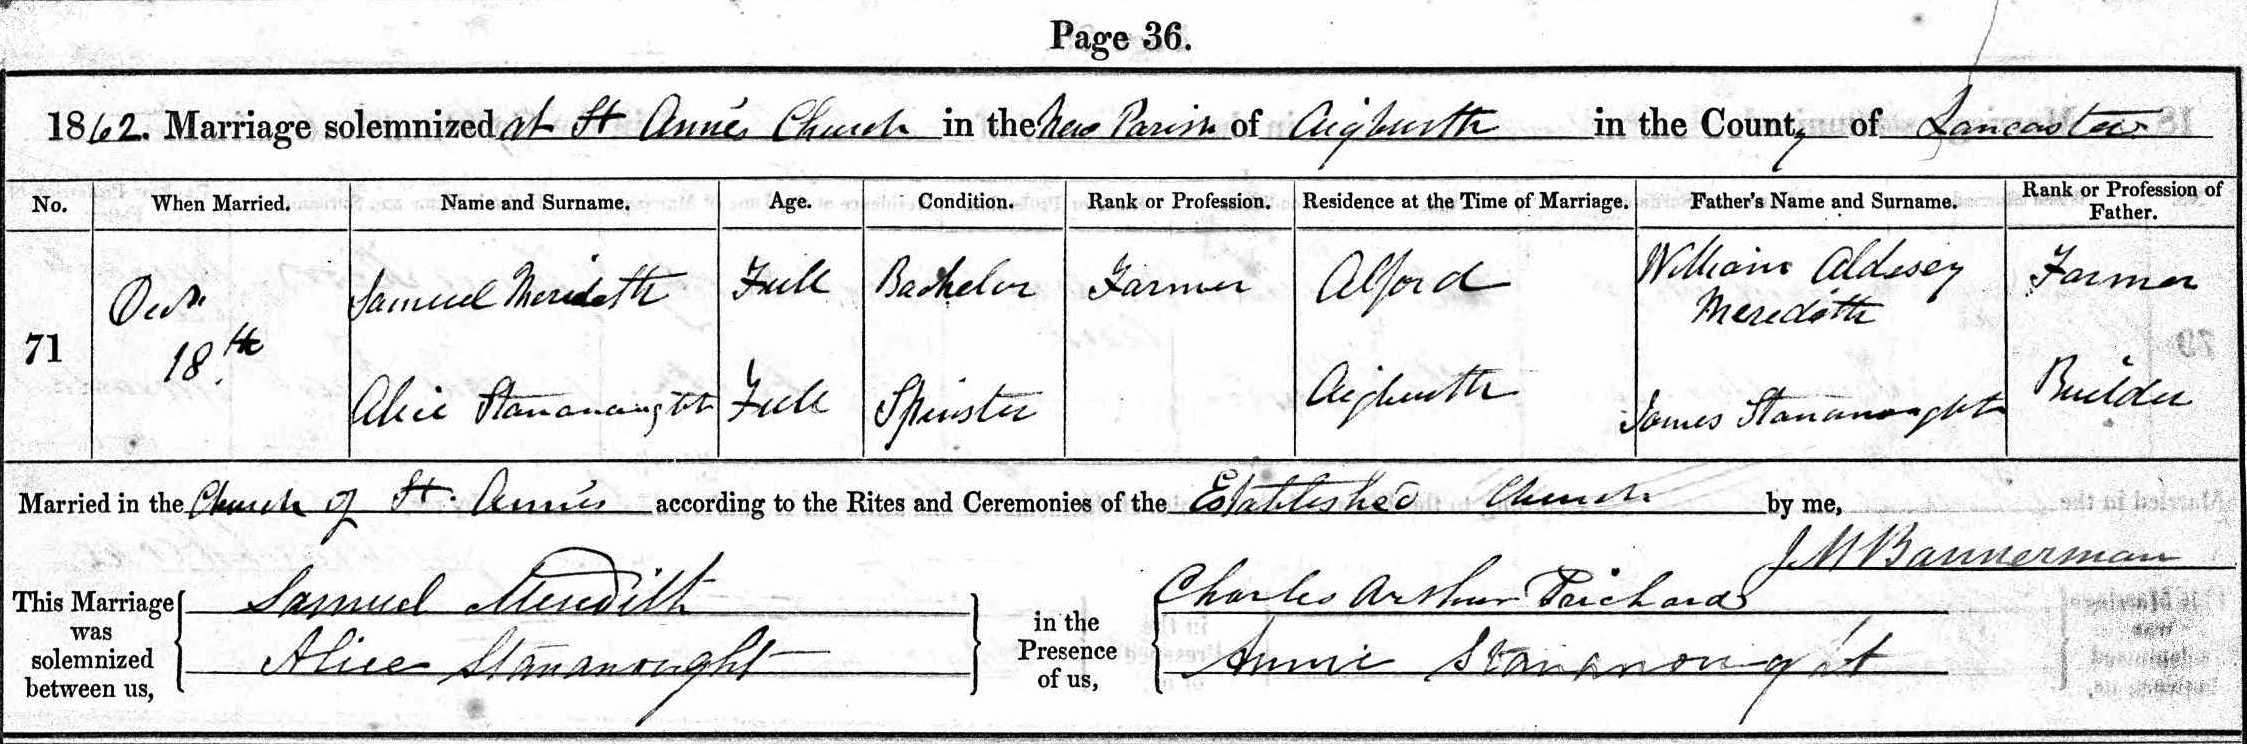 Page 36.
1862. Marriage solemnized at St Anne's Church in the New Parish of Aigburth in the County of Lancaster
No. When Married. Name and Surname. Age. Condition. Rank or Profession. Residence at the Time of Marriage. Father's Name and Surname. Rank or Profession of Father.
71 Decr 18th Samuel Meredith Full Bachelor Farmer Alford William Aldersey Meredith Farmer
Alice Stananought Full Spinster Aigburth James Stananought Builder
Married in the Church of St. Anne's according to the Rites and Ceremonies of the Established Church by me,
J M Bannerman
This Marriage was solemnized between us, Samuel Meredith Alice Stananought in the Presence of us, Charles Arthur Prichard Annie Stananought